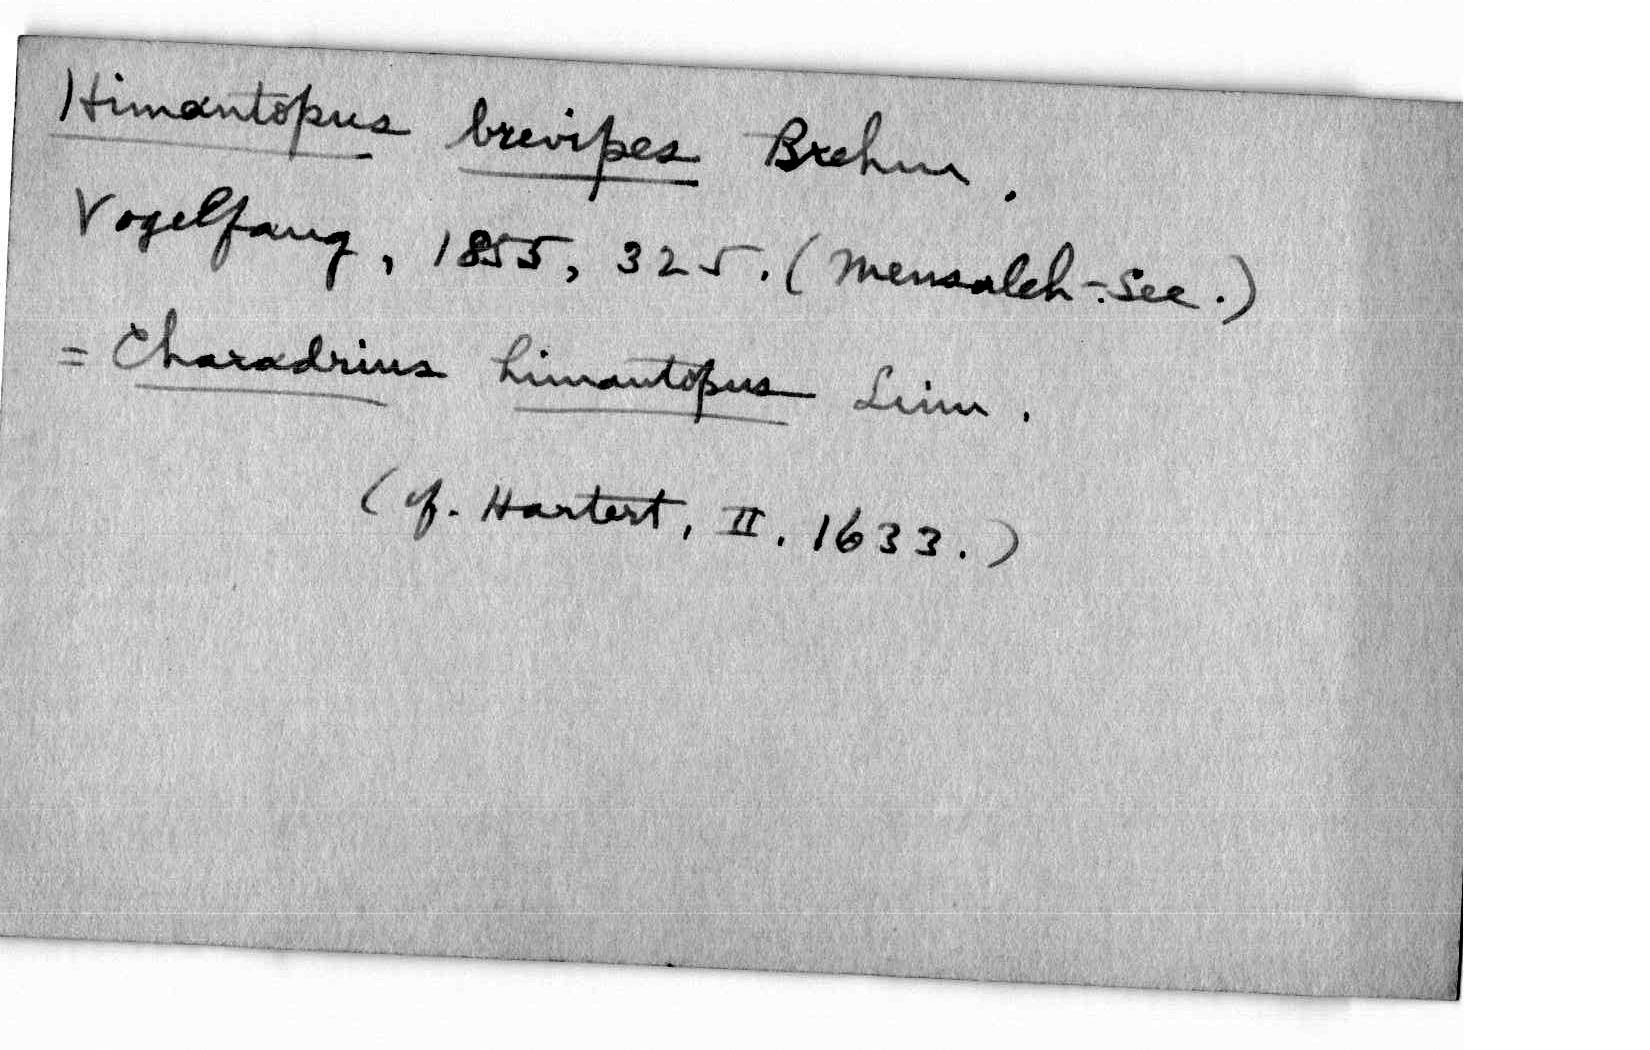 Himantopus brevipes Brehm.
Vogelfang, 1855, 325. (Mensaleh-See.)
= Charadrius himantopus Linn.
(cf. Hartert, II. 1633.)